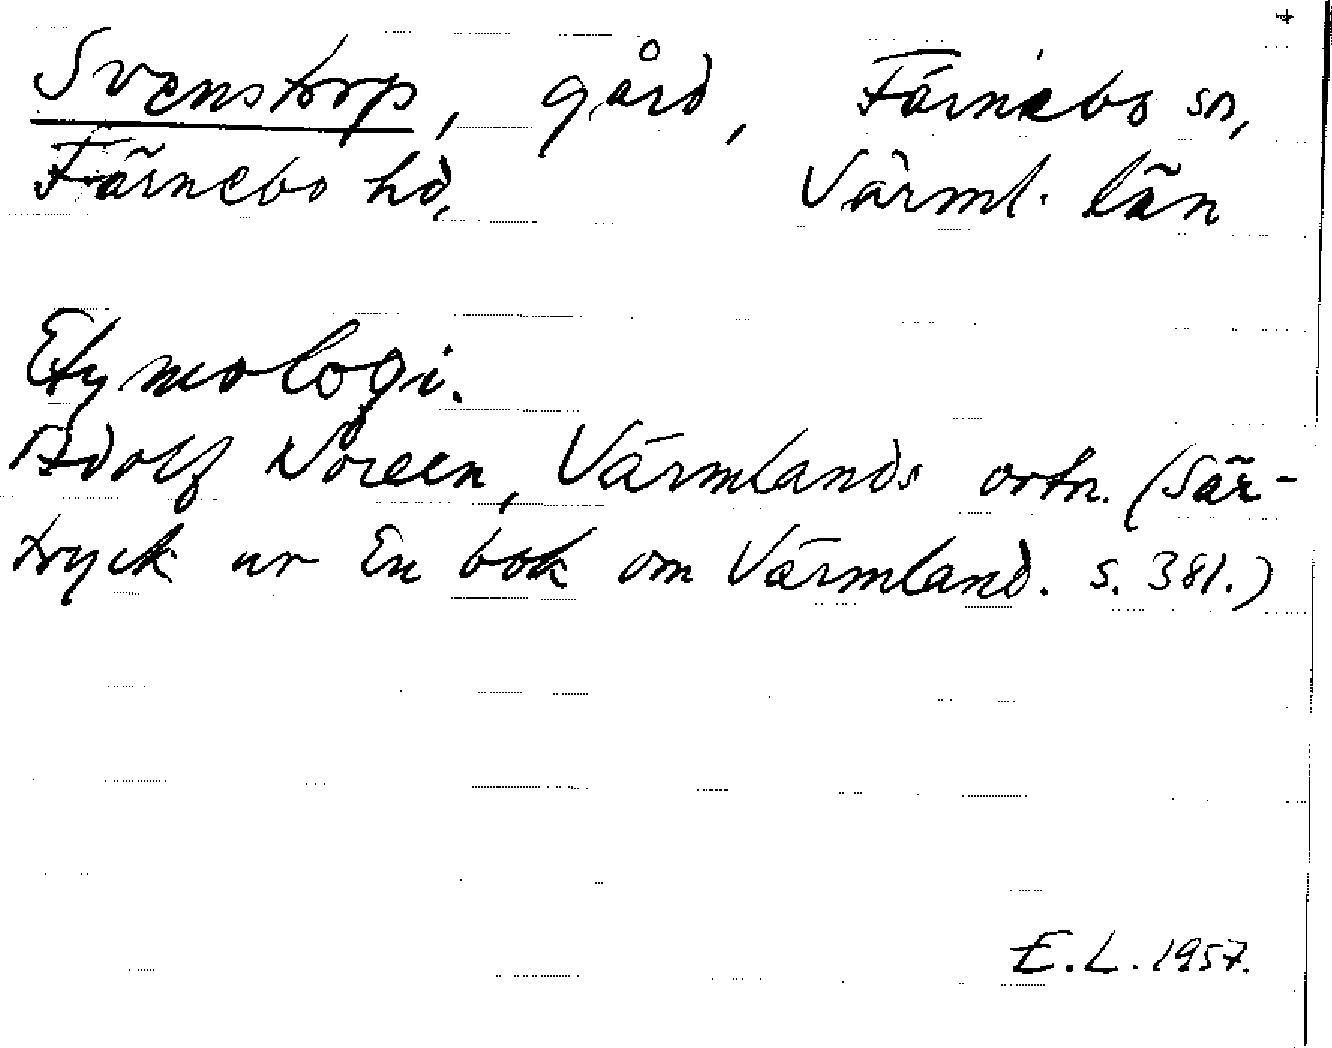 +
Svenstorp, gård, Färnebo sn,
Färnebo hd, Värml. län
Etymologi.
Adolf Noreen, Värmlands ortn. (Sär-
tryck ur En bok om Värmland. s. 381.)
E.L. 1957.